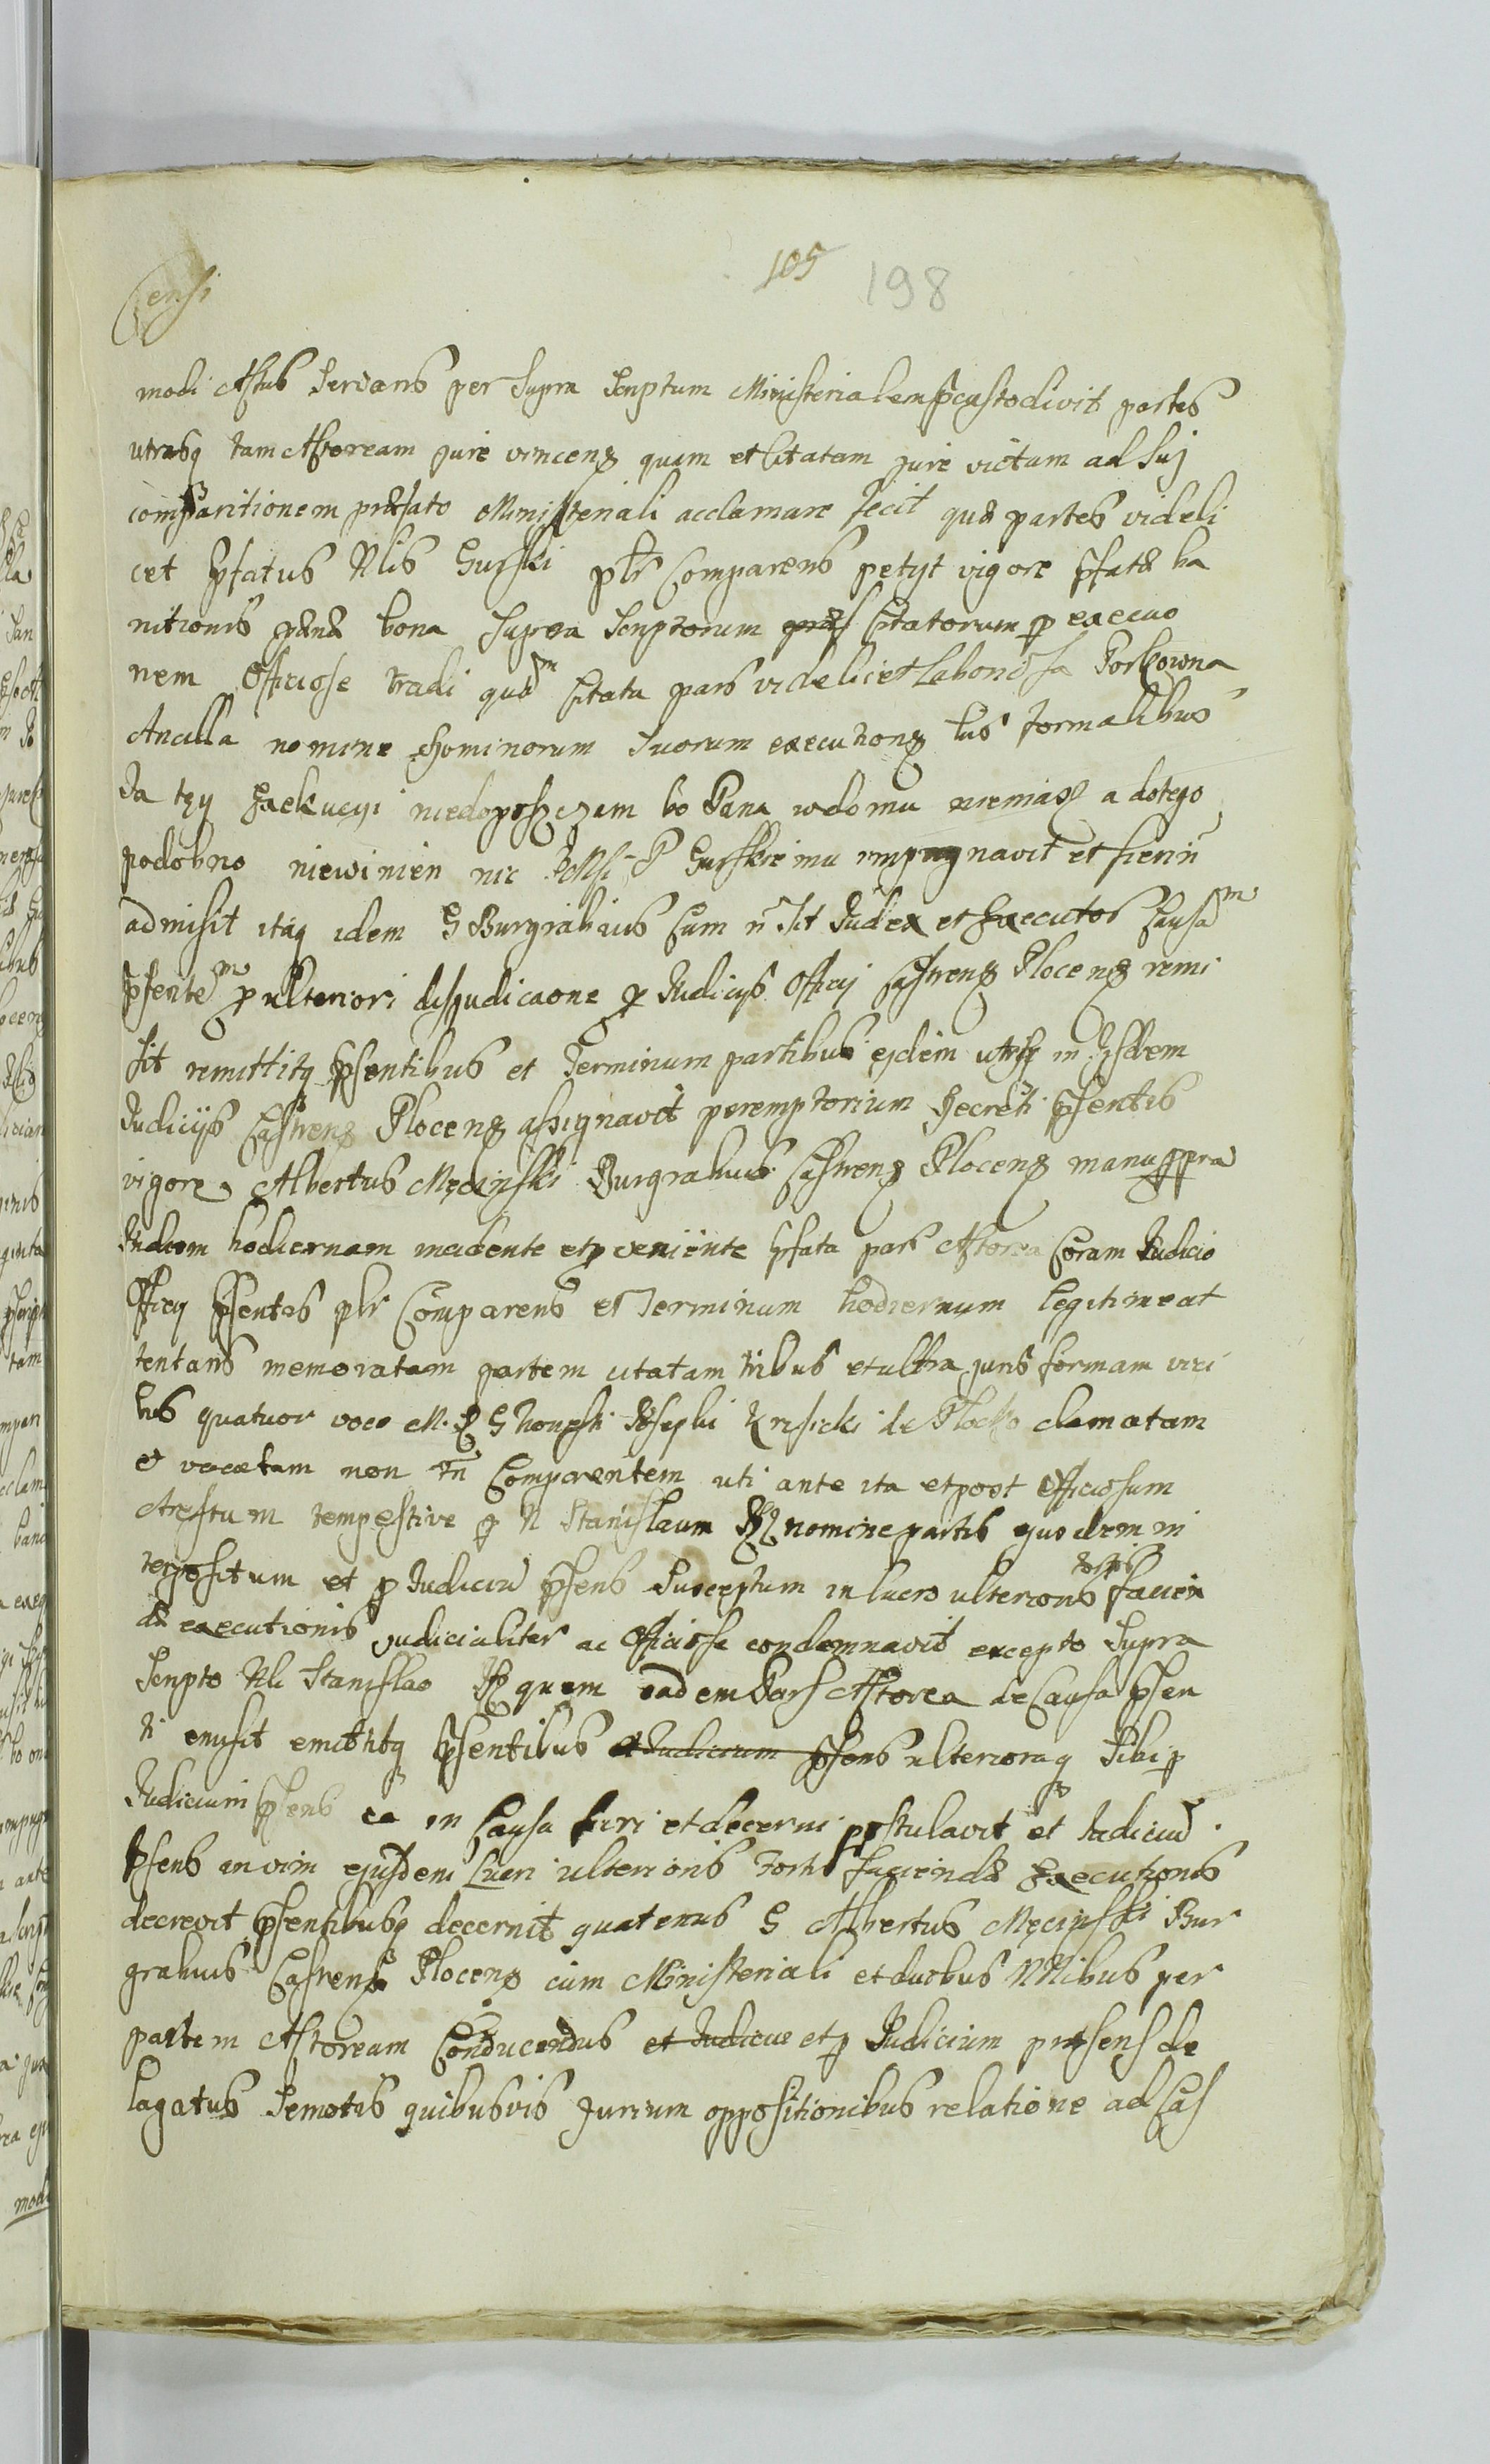 105 198
Censi
modi Actus Servans per Supra Scriptum Ministerialem pcustodivit partes
utrasq tam Actoream jure vincens quam et Citatam jure victam ad Sui
comparitionem præfato Ministeriali acclamare fecit quæ partes videli
cet pfatus Nlis Gurski plr Comparens petyt vigore pfatæ ba
nitionis pænæ bona Supra Scriptorum Citatorum p execuo
nem Officiose tradi quam Citata pars videlicet Laboriosa
Ancilla nomine Dominorum Suorum executions his formalibus
Ja tey Exekucyi niedopuszczam bo Pana wdomu niemasz a dotego
podobno niewinien nic P Gurskiemu impugnavit et fieri n
admisit itaq idem G Burgrabius Cum n Sit Judex et Executor Causam
psentem p ulteriori disjudicaone p Judicys Officij Castrens Plocens remi
sit remittitq psentibus et Terminum partibus ejdem utrisq in Jisdem
Judicijs Castrens Plocens assignavit peremptorium Decreti psentis
vigore. Albertus Męcinski Burgrabius Castrens Plocens manu ppra
Indiem hodiernam incidente et pveniente pfata pars Actorea Coram Judicio
Officij psentis plr Comparens et Terminum hodiernum legitime at
tentans memoratam partem citatam tribus et ultra juris formam vici
bus quatuor voce M. R G Josephi de Plocko clamatam
et vocatam non tn Comparentem uti ante ita et post Officiosum
Arestum tempestive p N Stanislaum nomine partis ejusdem in
terpositum et p Judiciu psens Susceptum in lucro ulterioris fortis facien
dæ executionis judicialiter ac Officiose condemnavit excepto Supra
Scripto Nli Stanislao quem eadem Pars Actorea de Causa psen
ti emisit emittitq psentibus et Judicium psens ulterioraq Sibi p
Judicium psens ea in Causa fieri et decerni postulavit et Judiciu
psens in vim ejusdem Lucri ulterioris fortis faciendæ Executionis
decrevit psentibusq decernit quatenus G Albertus Męcinski Bur
grabius Castrens Plocens cum Ministeriali et duobus NNlibus per
partem Actoream Conducendus et Judiciu et p Judicium præsens de
lagatus Semotis quibusvis Jurium oppositionibus relatione ad Cas